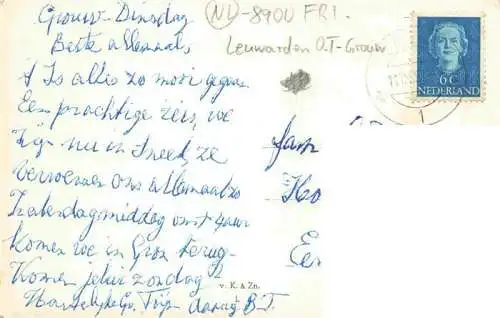 Grouw - Dinsdag
(NL)-8900 FRI.
Beste allemaal,
Leeuwarden O.T-Grouw
't Is alles zo mooi gegaan
Een prachtige reis, we
zijn nu in Sneek, ze
verwennen ons allemaal zo
Zaterdagmiddag omst 4 uur
komen we in Gron terug.
Komen jelui zondag
Hartelijke Gr.
Fam
Ko
Een
6 C
NEDERLAND
v. K. & Zn.